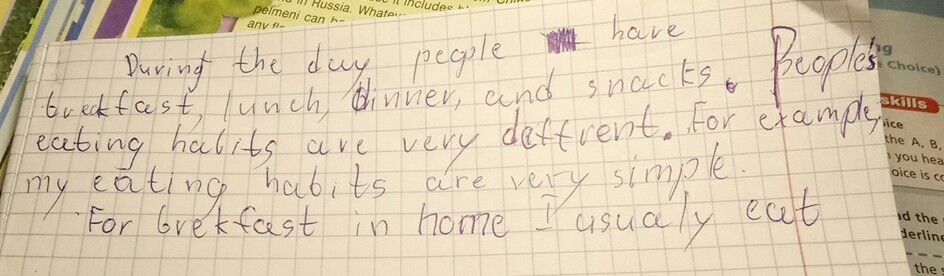 in Russia. Whatev
pelmeni can
any
includes
During the day people have
breakfast, lunch, dinner, and snacks. People's
eating habits are very deffrent. For example,
my eating habits are very simple.
For brekfast in home I usually eat
ng
Choice)
skills
ice
the A, B,
you hea
oice is co
ad the
derline
the